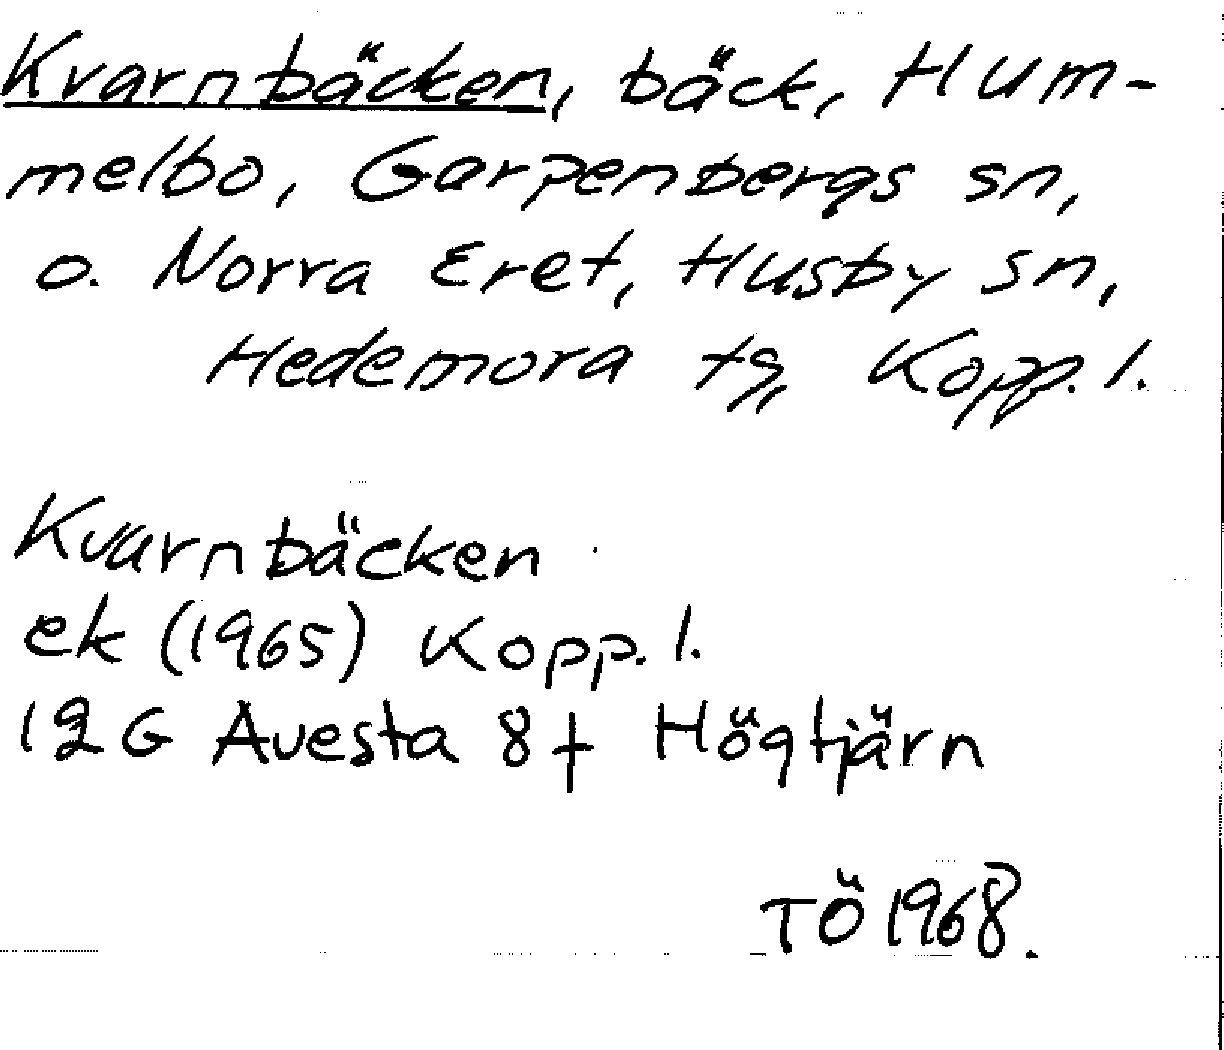 Kvarnbäcken, bäck, Hum-
melbo, Garpenbergs sn,
o. Norra Eret, Husby sn,
Hedemora tg, Kopp. l.
Kvarnbäcken
ek (1965) Kopp. l.
12 G Avesta 8f Högtjärn
TÖ 1968.